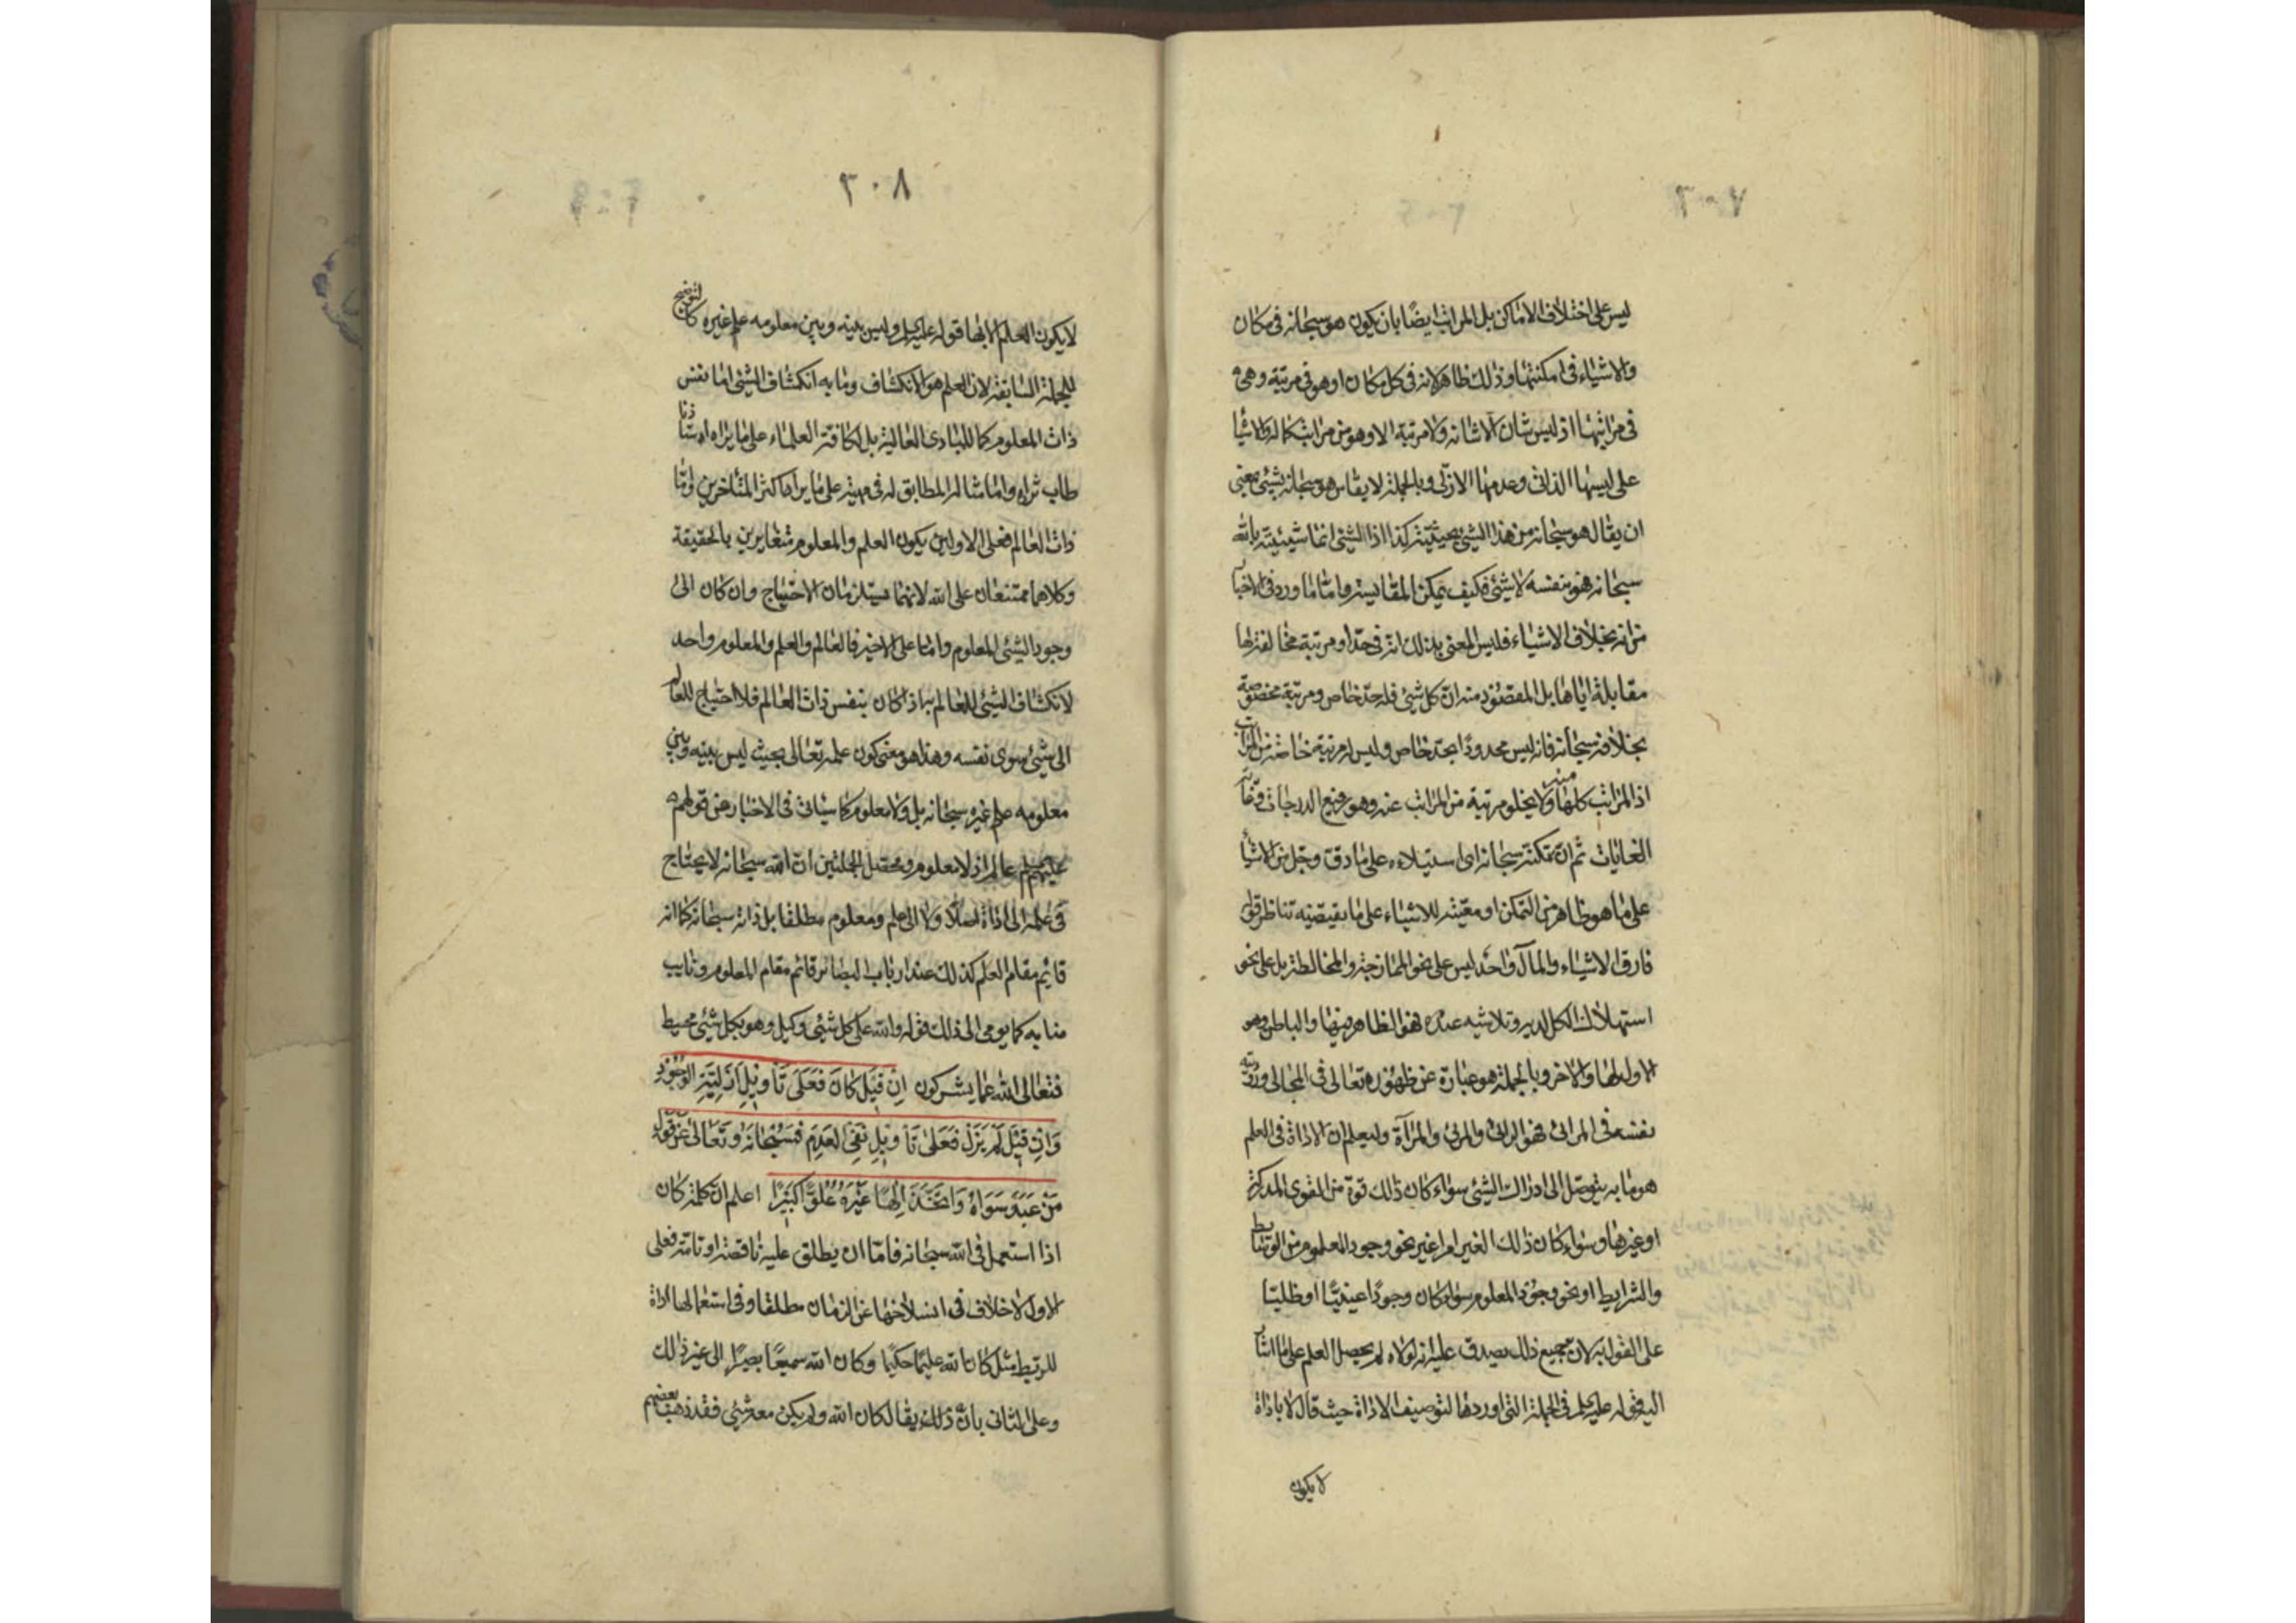 ٣٠٧
ليس على اختلاف الاماكن بل المراتب ايضًا بان يكون هو سبحانه فى مكان
والاشياء فى امكنتها وذلك ظاهر لانه فى كل مكان او هو فى مرتبة وهى
فى مراتبها اذ ليس شان الا شانه ولا مرتبة الا وهو من مراتب كماله والاشيا
على ليسها الذاتى وعدمها الازلى وبالجملة لا يقاس هو سبحانه بشيئ بمعنى
ان يقال هو سبحانه من هذا الشيئ بحيثية كذا اذ الشيئ انما شيئيته بالله
سبحانه فهو بنفسه لا شيئ فكيف يمكن المقايسة واما ما ورد فى الاخبار
من انه بخلاف الاشياء فليس المعنى بذلك انه فى حد او مرتبة مخالفة لها
مقابلة اياها بل المقصود منه ان كل شيئ فله حد خاص ومرتبة مخصوصة
بخلافه سبحانه فانه ليس محدودًا بحد خاص وليس له مرتبة خاصة من المراتب
اذ المراتب كلها منه ولا يخلو مرتبة من المراتب عنه وهو رفيع الدرجات وغاية
الغايات ثم ان تمكنه سبحانه اى استيلاءه على ما دق وجل من الاشيا
على ما هو ظاهر من التمكن او معيته للاشياء على ما يقتضيه تناظر قوله
فارق الاشياء والمآل واحد ليس على نحو الممازجة والمخالطة بل على نحو
استهلاك الكل لديه وتلاشيه عنده فهو الظاهر فيها والباطن وهو
الاول لها والاخر وبالجملة هو عبارة عن ظهوره تعالى فى المجالى ورؤية
نفسه فى المرائى فهو الرائى والمرئى والمرآة وليعلم ان الاداة فى العلم
هو ما به يتوصل الى ادراك الشيئ سواء كان ذلك قوة من القوى المدركة
او غيرها وسواء كان ذلك الغير امرا غير نحو وجود المعلوم من الوسائط
والشرايط او نحو وجود المعلوم سواء كان وجودًا عينيًا او ظليا
على القوابه لان جميع ذلك يصدق عليه انه لولاه لم يحصل العلم على ما اشار
اليه قوله عليه السلم فى الجملة التى اوردها لتوصيف الاداة حيث قال لا باداة
لا يكون
٣٠٨
لا يكون العلم الا بها قوله عليه السلم وليس بينه وبين معلومه علم غيره كالتوضيح
للجملة السابقة لان العلم هو الانكشاف وما به انكشاف الشيئ اما نفس
ذات المعلوم كما للمبادى العالية بل لكافة العلماء على ما يراه استاذنا
طاب ثراه واما مثاله المطابق له فى مهيته على ما يراه اكثر المتاخرين واما
ذات العالم فعلى الاولين يكون العلم والمعلوم متغايرين بالحقيقة
وكلاهما ممتنعان على الله لانهما يستلزمان الاحتياج وان كان الى
وجود الشيئ المعلوم واما على الاخير فالعالم والعلم والمعلوم واحد
لانكشاف الشيئ للعالم به اذا كان بنفس ذات العالم فلا احتياج للعالم
الى شيئ سوى نفسه وهذا هو معنى كون علمه تعالى بحيث ليس بينه وبين
معلومه علم غيره سبحانه بل ولا معلوم كما سياتى فى الاخبار من قولهم
عليهم السلم عالم اذ لا معلوم ومحصل الجملتين ان الله سبحانه لا يحتاج
فى علمه الى اداة اصلًا ولا الى علم ومعلوم مطلقا بل ذاته سبحانه كما انه
قائم مقام العلم كذلك عند ارباب البصائر قائم مقام المعلوم ونايب
منابه كما يومى الى ذلك قوله والله على كل شيئ وكيل وهو بكل شيئ محيط
فتعالى الله عما يشركون اِنْ قِيلَ كَانَ فَعَلَى تَأْوِيلِ اَزَلِيَّةِ الْوُجُودِ
وَاِنْ قِيلَ لَمْ يَزَلْ فَعَلى تَأْوِيلِ نَفْيِ الْعَدَمِ فَسُبْحَانَهُ وَتَعَالىٰ عَنْ قَوْلِ
مَنْ عَبَدَ سَوَاهُ وَاتَّخَذَ اِلٰهًا غَيْرَهُ عُلُوًّا كَبِيرًا اعلم ان كلمة كان
اذا استعمل فى الله سبحانه فاما ان يطلق عليه ناقصة او تامة فعلى
الاول لا خلاف فى انسلاخها عن الزمان مطلقا وفى استعمالها اداة
للربط مثل كان الله عليمًا حكيمًا وكان الله سميعًا بصيرًا الى غير ذلك
وعلى الثانى بان ذلك يقال كان الله ولم يكن معه شيئ فقد ذهب بعضهم